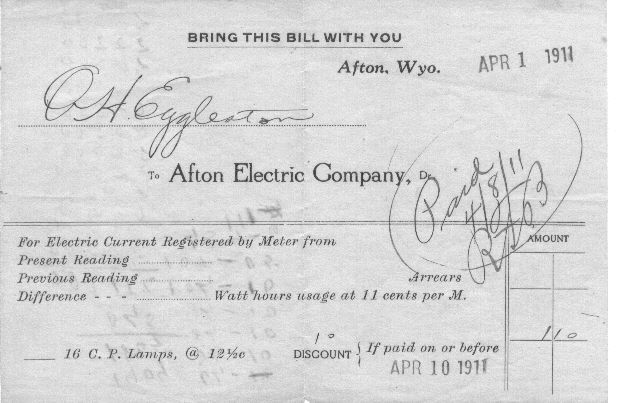 BRING THIS BILL WITH YOU
Afton, Wyo. APR 1 1911
O H Eggleston
To Afton Electric Company, Dr.
Paid
4/8/11
AMOUNT
For Electric Current Registered by Meter from
Present Reading
Previous Reading Arrears
Difference - - - Watt hours usage at 11 cents per M.
1 10
16 C. P. Lamps, @ 12½c DISCOUNT 10 { If paid on or before
APR 10 1911